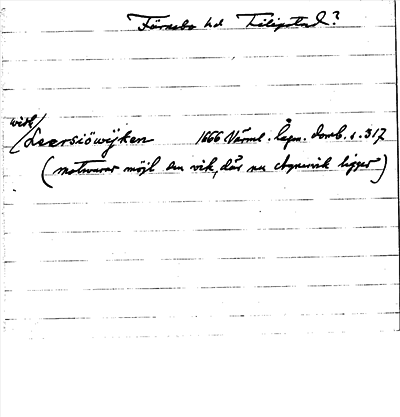 Färnebo hd Filipstad?
with/
Leersiöwijken 1666 Värml. lagm. domb. s. 317
(motsvarar möjl den vik, där nu Agnervik ligger)